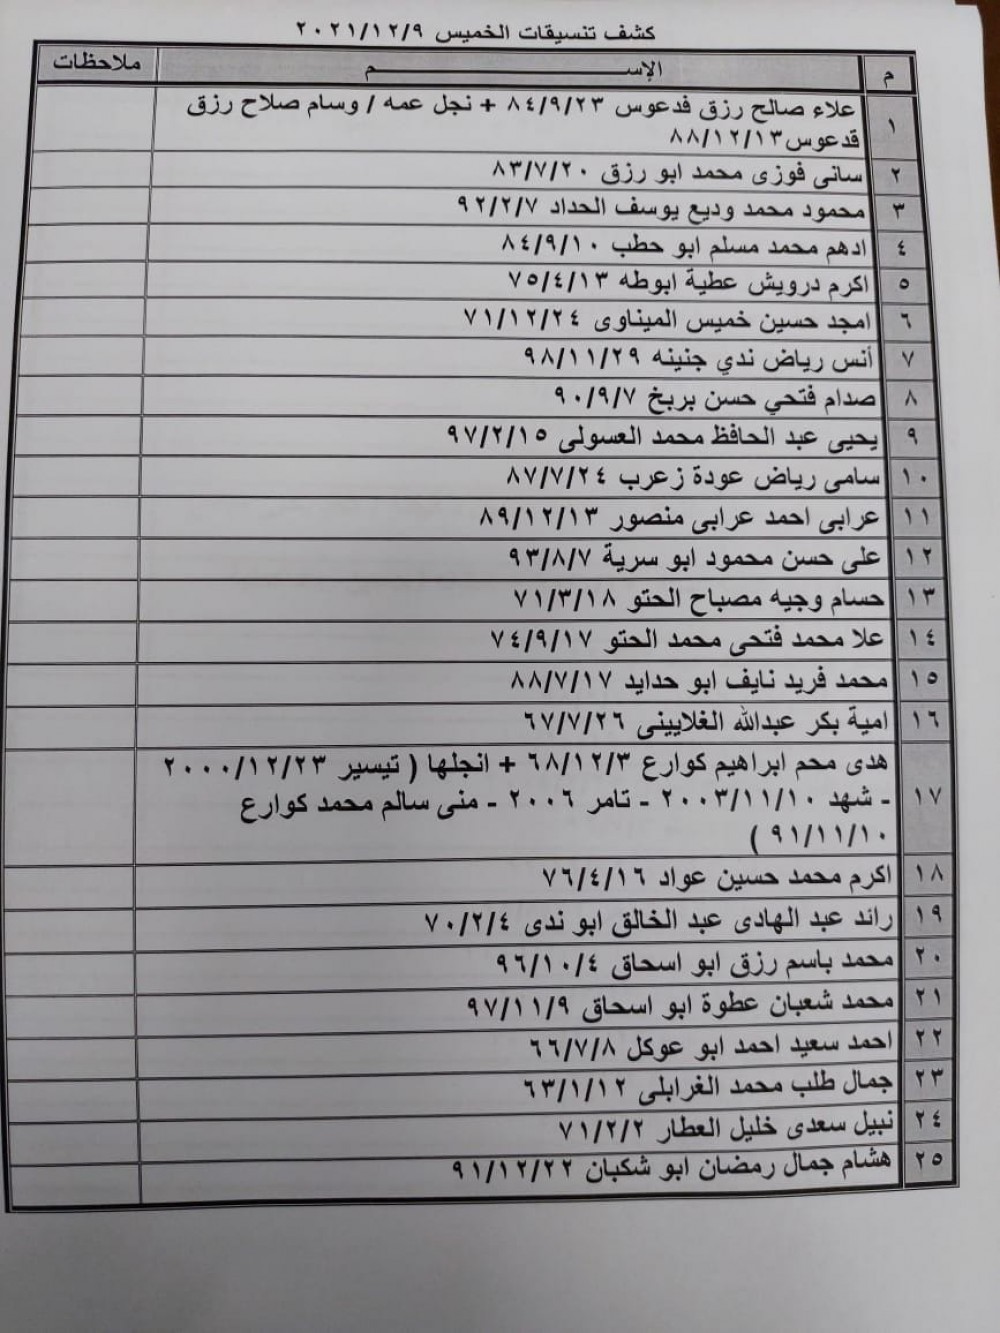 كشف تنسيقات الخميس ٢٠٢١/١٢/٩
م الإســــــم ملاحظات
١ علاء صالح رزق فدعوس ٨٤/٩/٢٣ + نجل عمه / وسام صلاح رزق
قدعوس ٨٨/١٢/١٣
٢ سانى فوزى محمد ابو رزق ٨٣/٧/٢٠
٣ محمود محمد وديع يوسف الحداد ٩٢/٢/٧
٤ ادهم محمد مسلم ابو حطب ٨٤/٩/١٠
٥ اكرم درويش عطية ابوطه ٧٥/٤/١٣
٦ امجد حسين خميس الميناوى ٧١/١٢/٢٤
٧ أنس رياض ندي جنينه ٩٨/١١/٢٩
٨ صدام فتحي حسن بربخ ٩٠/٩/٧
٩ يحيى عبد الحافظ محمد العسولى ٩٧/٢/١٥
١٠ سامى رياض عودة زعرب ٨٧/٧/٢٤
١١ عرابى احمد عرابى منصور ٨٩/١٢/١٣
١٢ على حسن محمود ابو سرية ٩٣/٨/٧
١٣ حسام وجيه مصباح الحتو ٧١/٣/١٨
١٤ علا محمد فتحى محمد الحتو ٧٤/٩/١٧
١٥ محمد فريد نايف ابو حدايد ٨٨/٧/١٧
١٦ امية بكر عبدالله الغلايينى ٦٧/٧/٢٦
١٧ هدى محم ابراهيم كوارع ٦٨/١٢/٣ + انجلها ( تيسير ٢٠٠٠/١٢/٢٣
- شهد ٢٠٠٣/١١/١٠ - تامر ٢٠٠٦ - منى سالم محمد كوارع
٩١/١١/١٠ )
١٨ اكرم محمد حسين عواد ٧٦/٤/١٦
١٩ رائد عبد الهادى عبد الخالق ابو ندى ٧٠/٢/٤
٢٠ محمد باسم رزق ابو اسحاق ٩٦/١٠/٤
٢١ محمد شعبان عطوة ابو اسحاق ٩٧/١١/٩
٢٢ احمد سعيد احمد ابو عوكل ٦٦/٧/٨
٢٣ جمال طلب محمد الغرابلى ٦٣/١/١٢
٢٤ نبيل سعدى خليل العطار ٧١/٢/٢
٢٥ هشام جمال رمضان ابو شكبان ٩١/١٢/٢٢